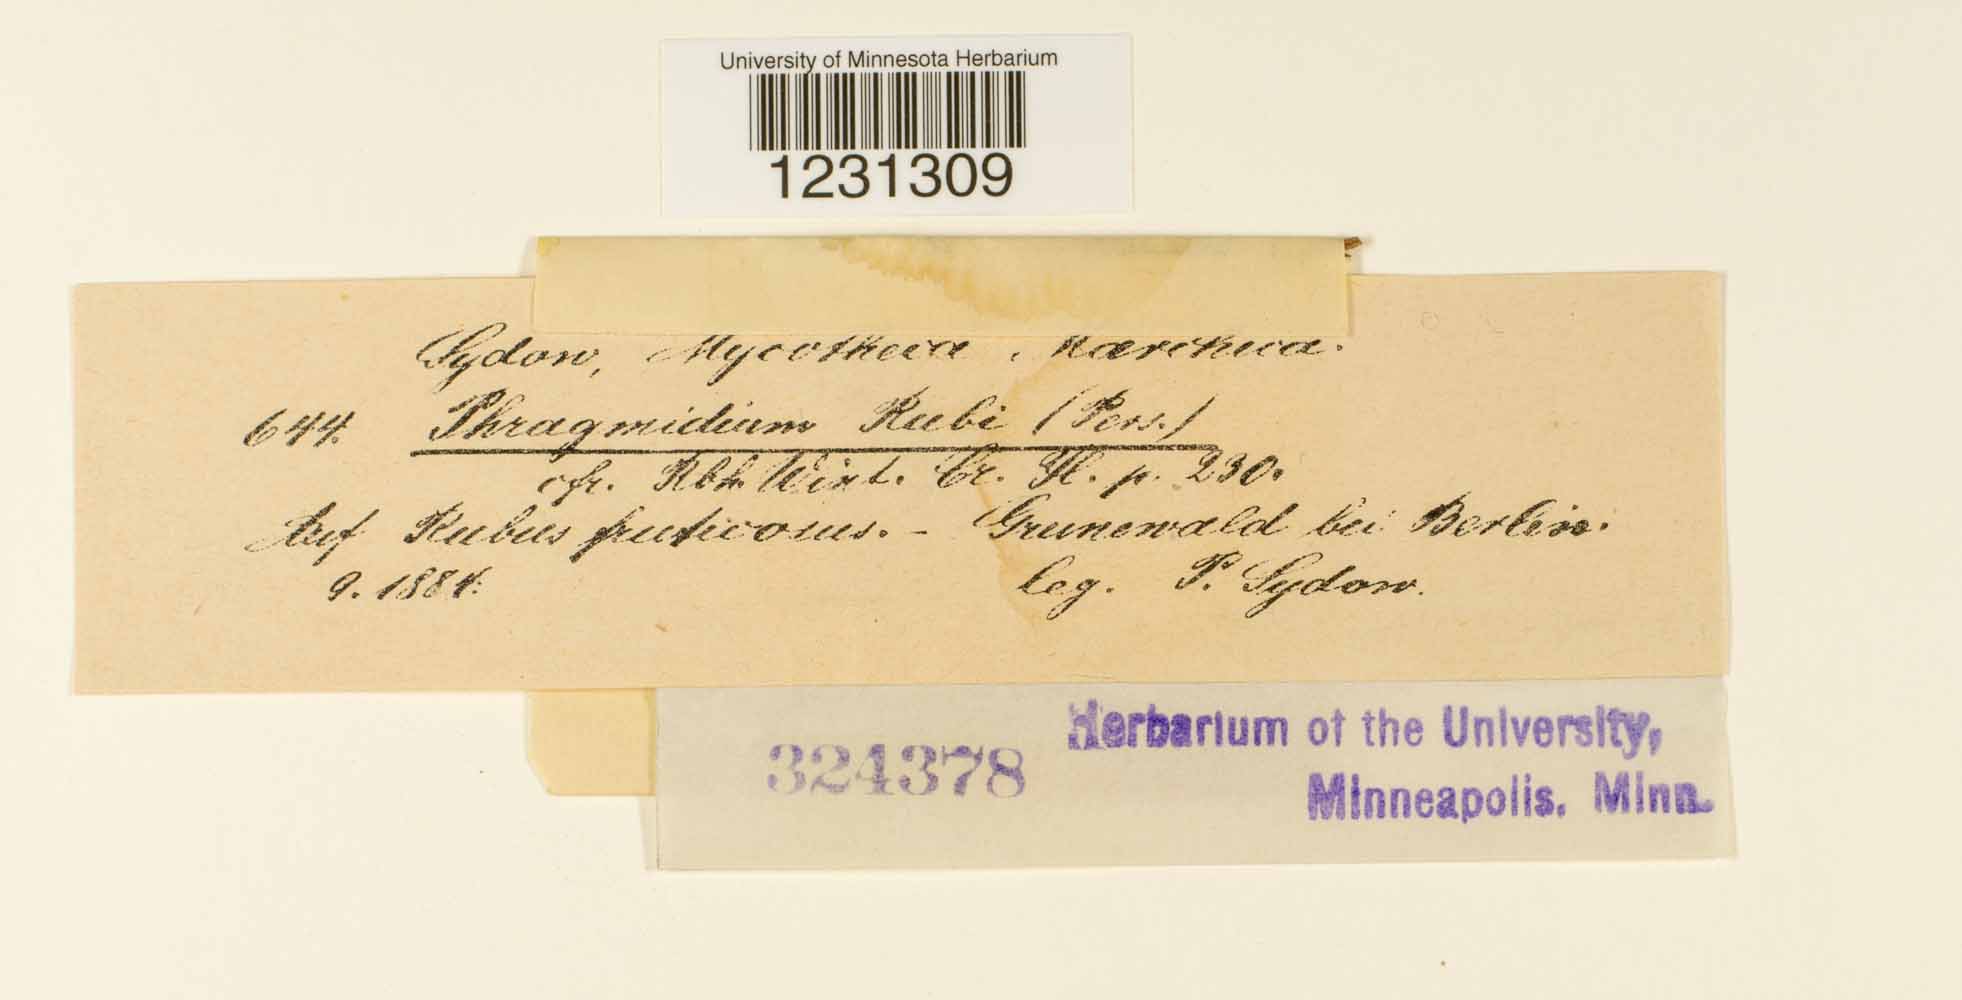 University of Minnesota Herbarium
1231309
Sydow, Mycotheca Marchica.
644. Phragmidium Rubi (Pers.)
cfr. Rbh. Wint. Cr. Fl. p. 230.
Auf Rubus fruticosus. - Grunewald bei Berlin.
9. 1884. leg. P. Sydow.
324378
Herbarium of the University,
Minneapolis. Minn.